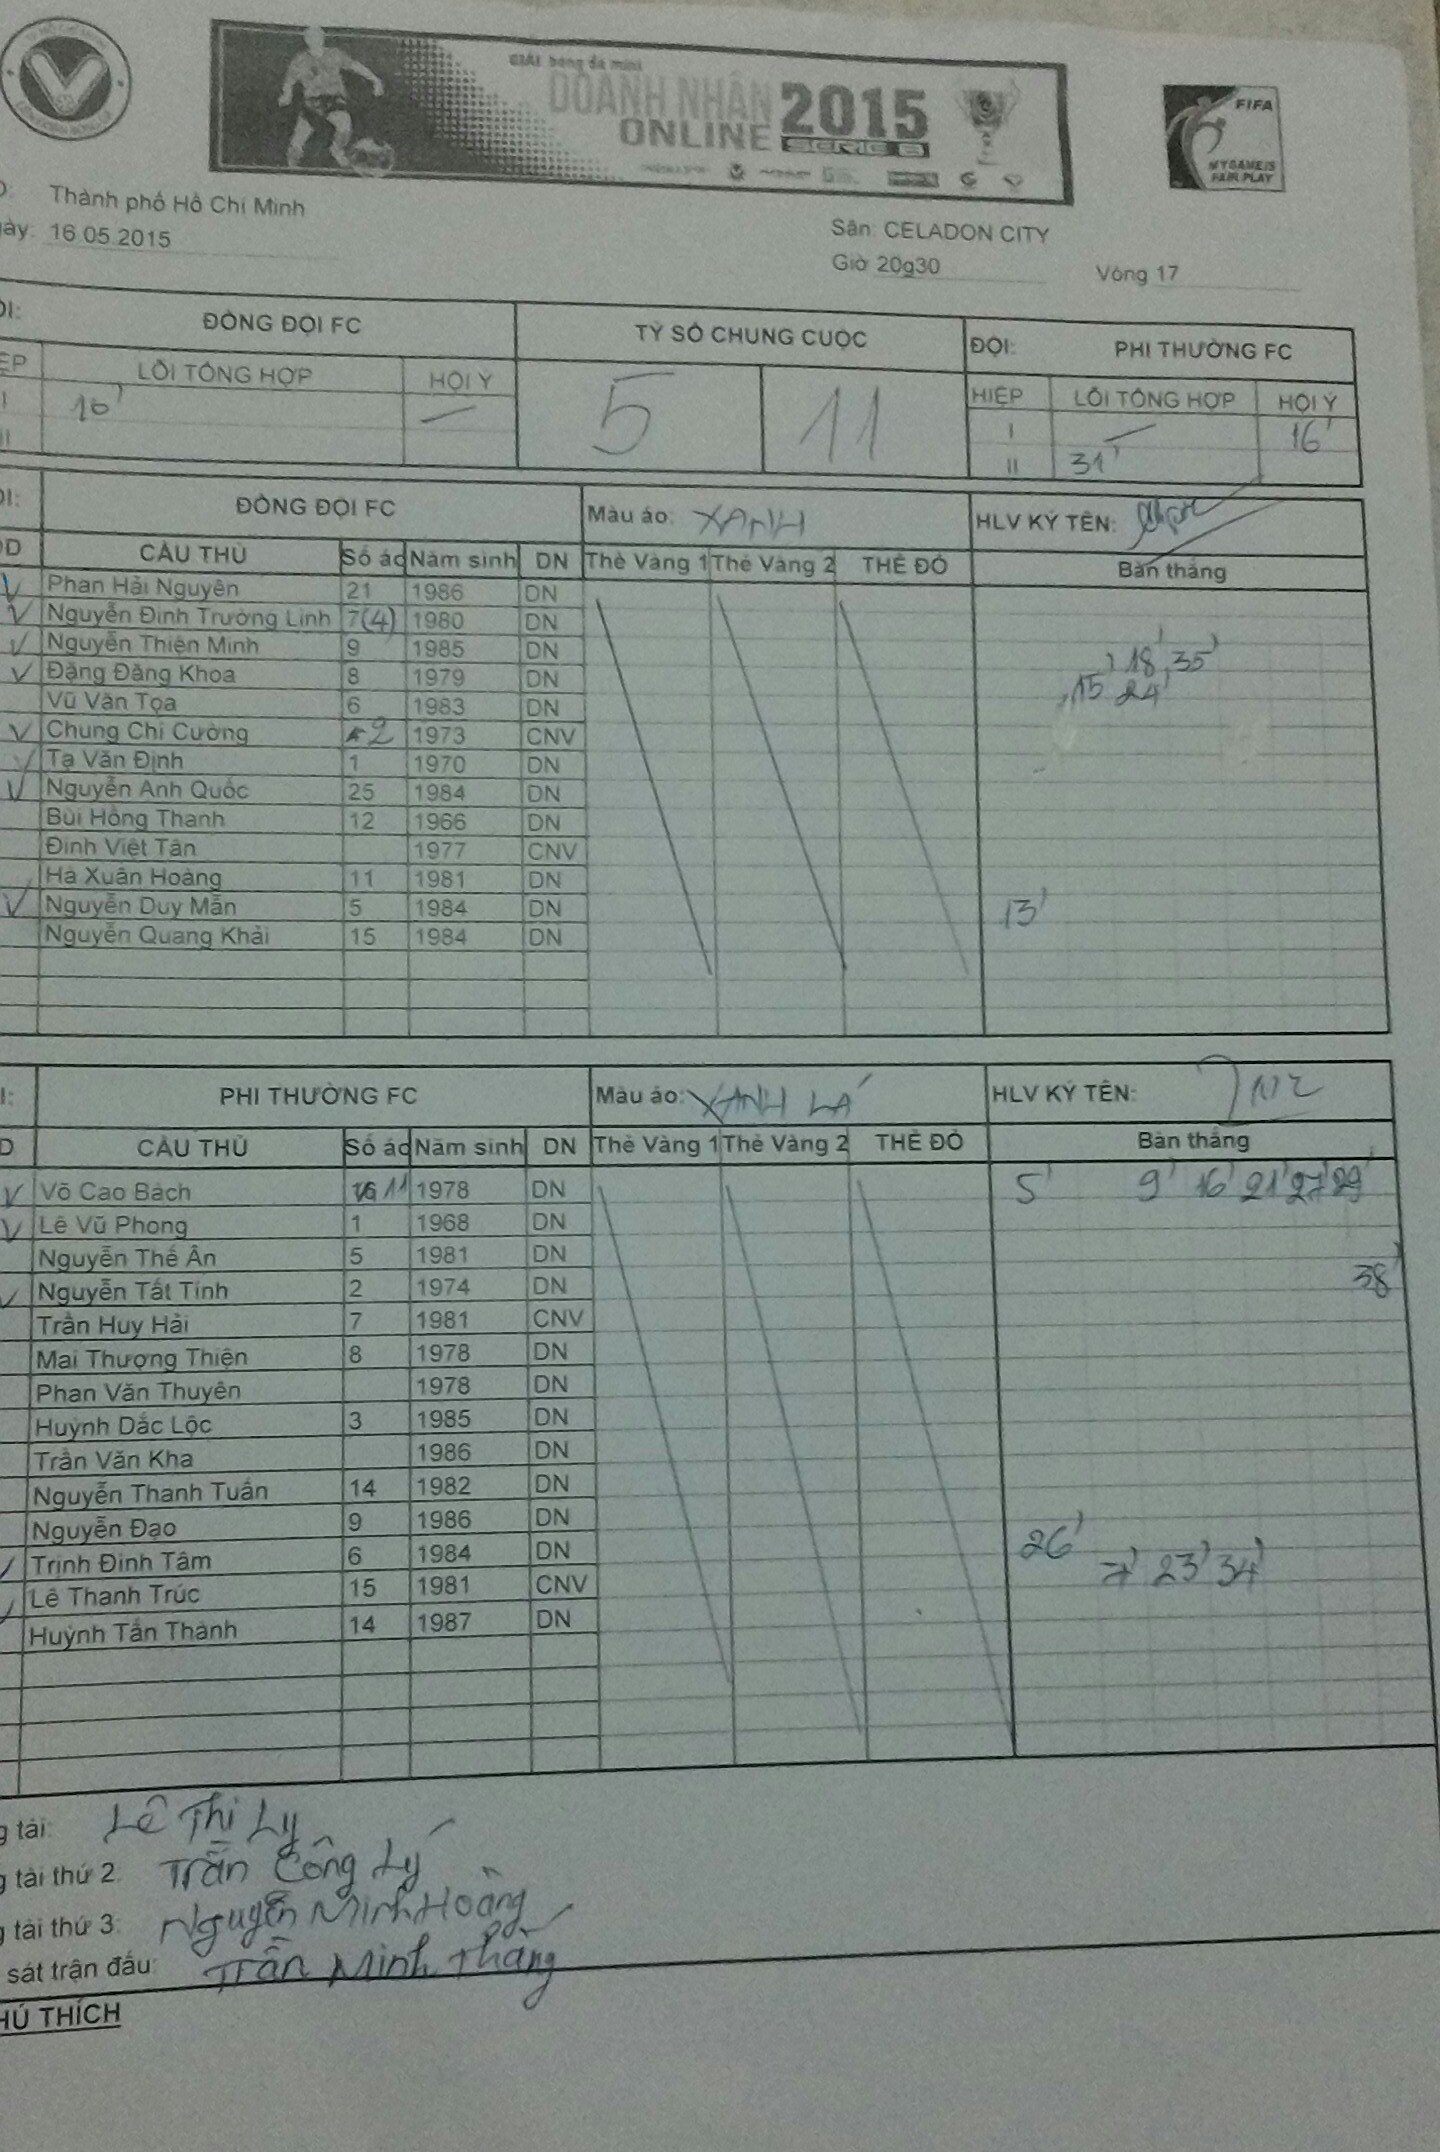 GIẢI bóng đá mini
DOANH NHÂN 2015
ONLINE SERIE B
FIFA
MY GAME IS
FAIR PLAY
Thành phố Hồ Chí Minh
16.05.2015
Sân: CELADON CITY
Giờ 20g30 Vòng 17
ĐỒNG ĐỘI FC TỶ SỐ CHUNG CUỘC ĐỘI: PHI THƯỜNG FC
LỖI TỔNG HỢP HỘI Ý 5 11 HIỆP LỖI TỔNG HỢP HỘI Ý
I 10' – I – 16'
II II 31'
ĐỒNG ĐỘI FC Màu áo: XANH HLV KÝ TÊN:
CẦU THỦ Số áo Năm sinh DN Thẻ Vàng 1 Thẻ Vàng 2 THẺ ĐỎ Bàn thắng
V Phan Hải Nguyên 21 1986 DN
V Nguyễn Đình Trường Linh 7(4) 1980 DN
V Nguyễn Thiện Minh 9 1985 DN 18' 35'
V Đặng Đăng Khoa 8 1979 DN 15' 24'
Vũ Văn Tọa 6 1983 DN
V Chung Chí Cường 2 1973 CNV
V Tạ Văn Định 1 1970 DN
V Nguyễn Anh Quốc 25 1984 DN
Bùi Hồng Thanh 12 1966 DN
Đinh Việt Tân 1977 CNV
Hà Xuân Hoàng 11 1981 DN
V Nguyễn Duy Mẫn 5 1984 DN 13'
Nguyễn Quang Khải 15 1984 DN
PHI THƯỜNG FC Màu áo: XANH LÁ HLV KÝ TÊN:
CẦU THỦ Số áo Năm sinh DN Thẻ Vàng 1 Thẻ Vàng 2 THẺ ĐỎ Bàn thắng
V Võ Cao Bách 11 1978 DN 5' 9' 16' 21' 27' 29'
V Lê Vũ Phong 1 1968 DN
Nguyễn Thế Ân 5 1981 DN
V Nguyễn Tất Tính 2 1974 DN 38'
Trần Huy Hải 7 1981 CNV
Mai Thượng Thiện 8 1978 DN
Phan Văn Thuyên 1978 DN
Huỳnh Dắc Lộc 3 1985 DN
Trần Văn Kha 1986 DN
Nguyễn Thanh Tuấn 14 1982 DN
Nguyễn Đạo 9 1986 DN
V Trịnh Đình Tâm 6 1984 DN 26'
V Lê Thanh Trúc 15 1981 CNV 7' 23' 34'
Huỳnh Tấn Thành 14 1987 DN
tài: Lê Thị Ly
tài thứ 2: Trần Công Lý
tài thứ 3: Nguyễn Minh Hoàng
sát trận đấu: Trần Minh Thắng
HÚ THÍCH